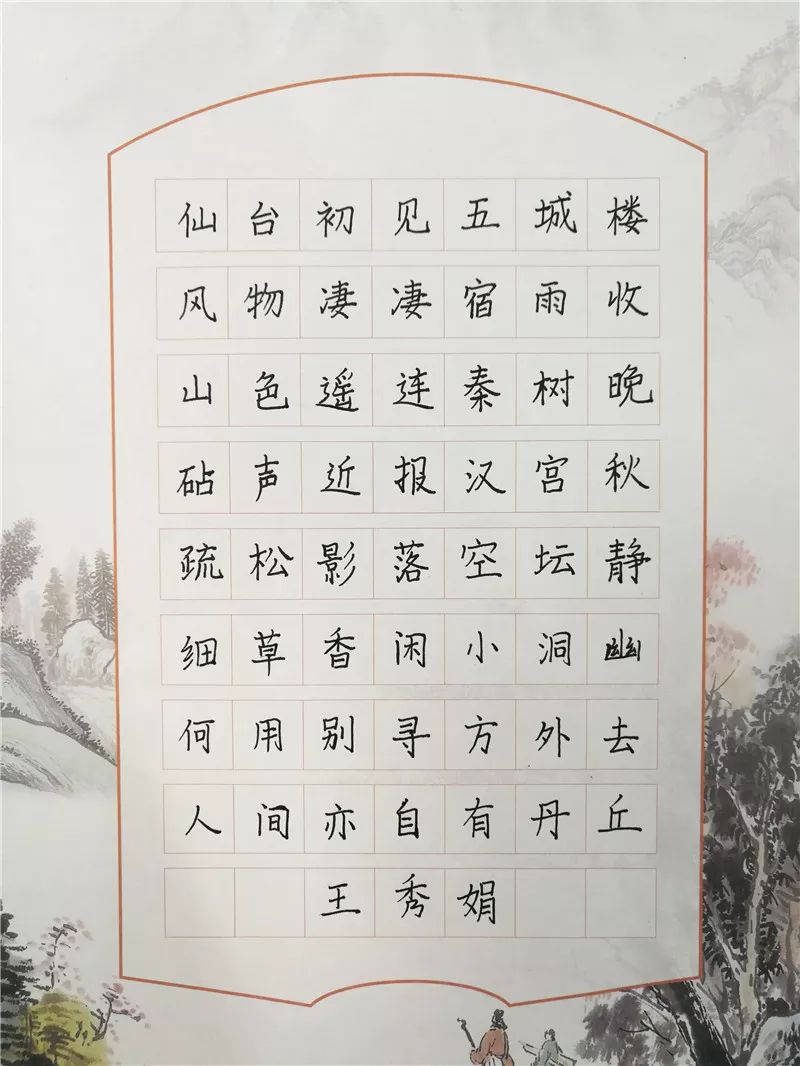 仙台初见五城楼
风物凄凄宿雨收
山色遥连秦树晚
砧声近报汉宫秋
疏松影落空坛静
细草香闲小洞幽
何用别寻方外去
人间亦自有丹丘
王秀娟